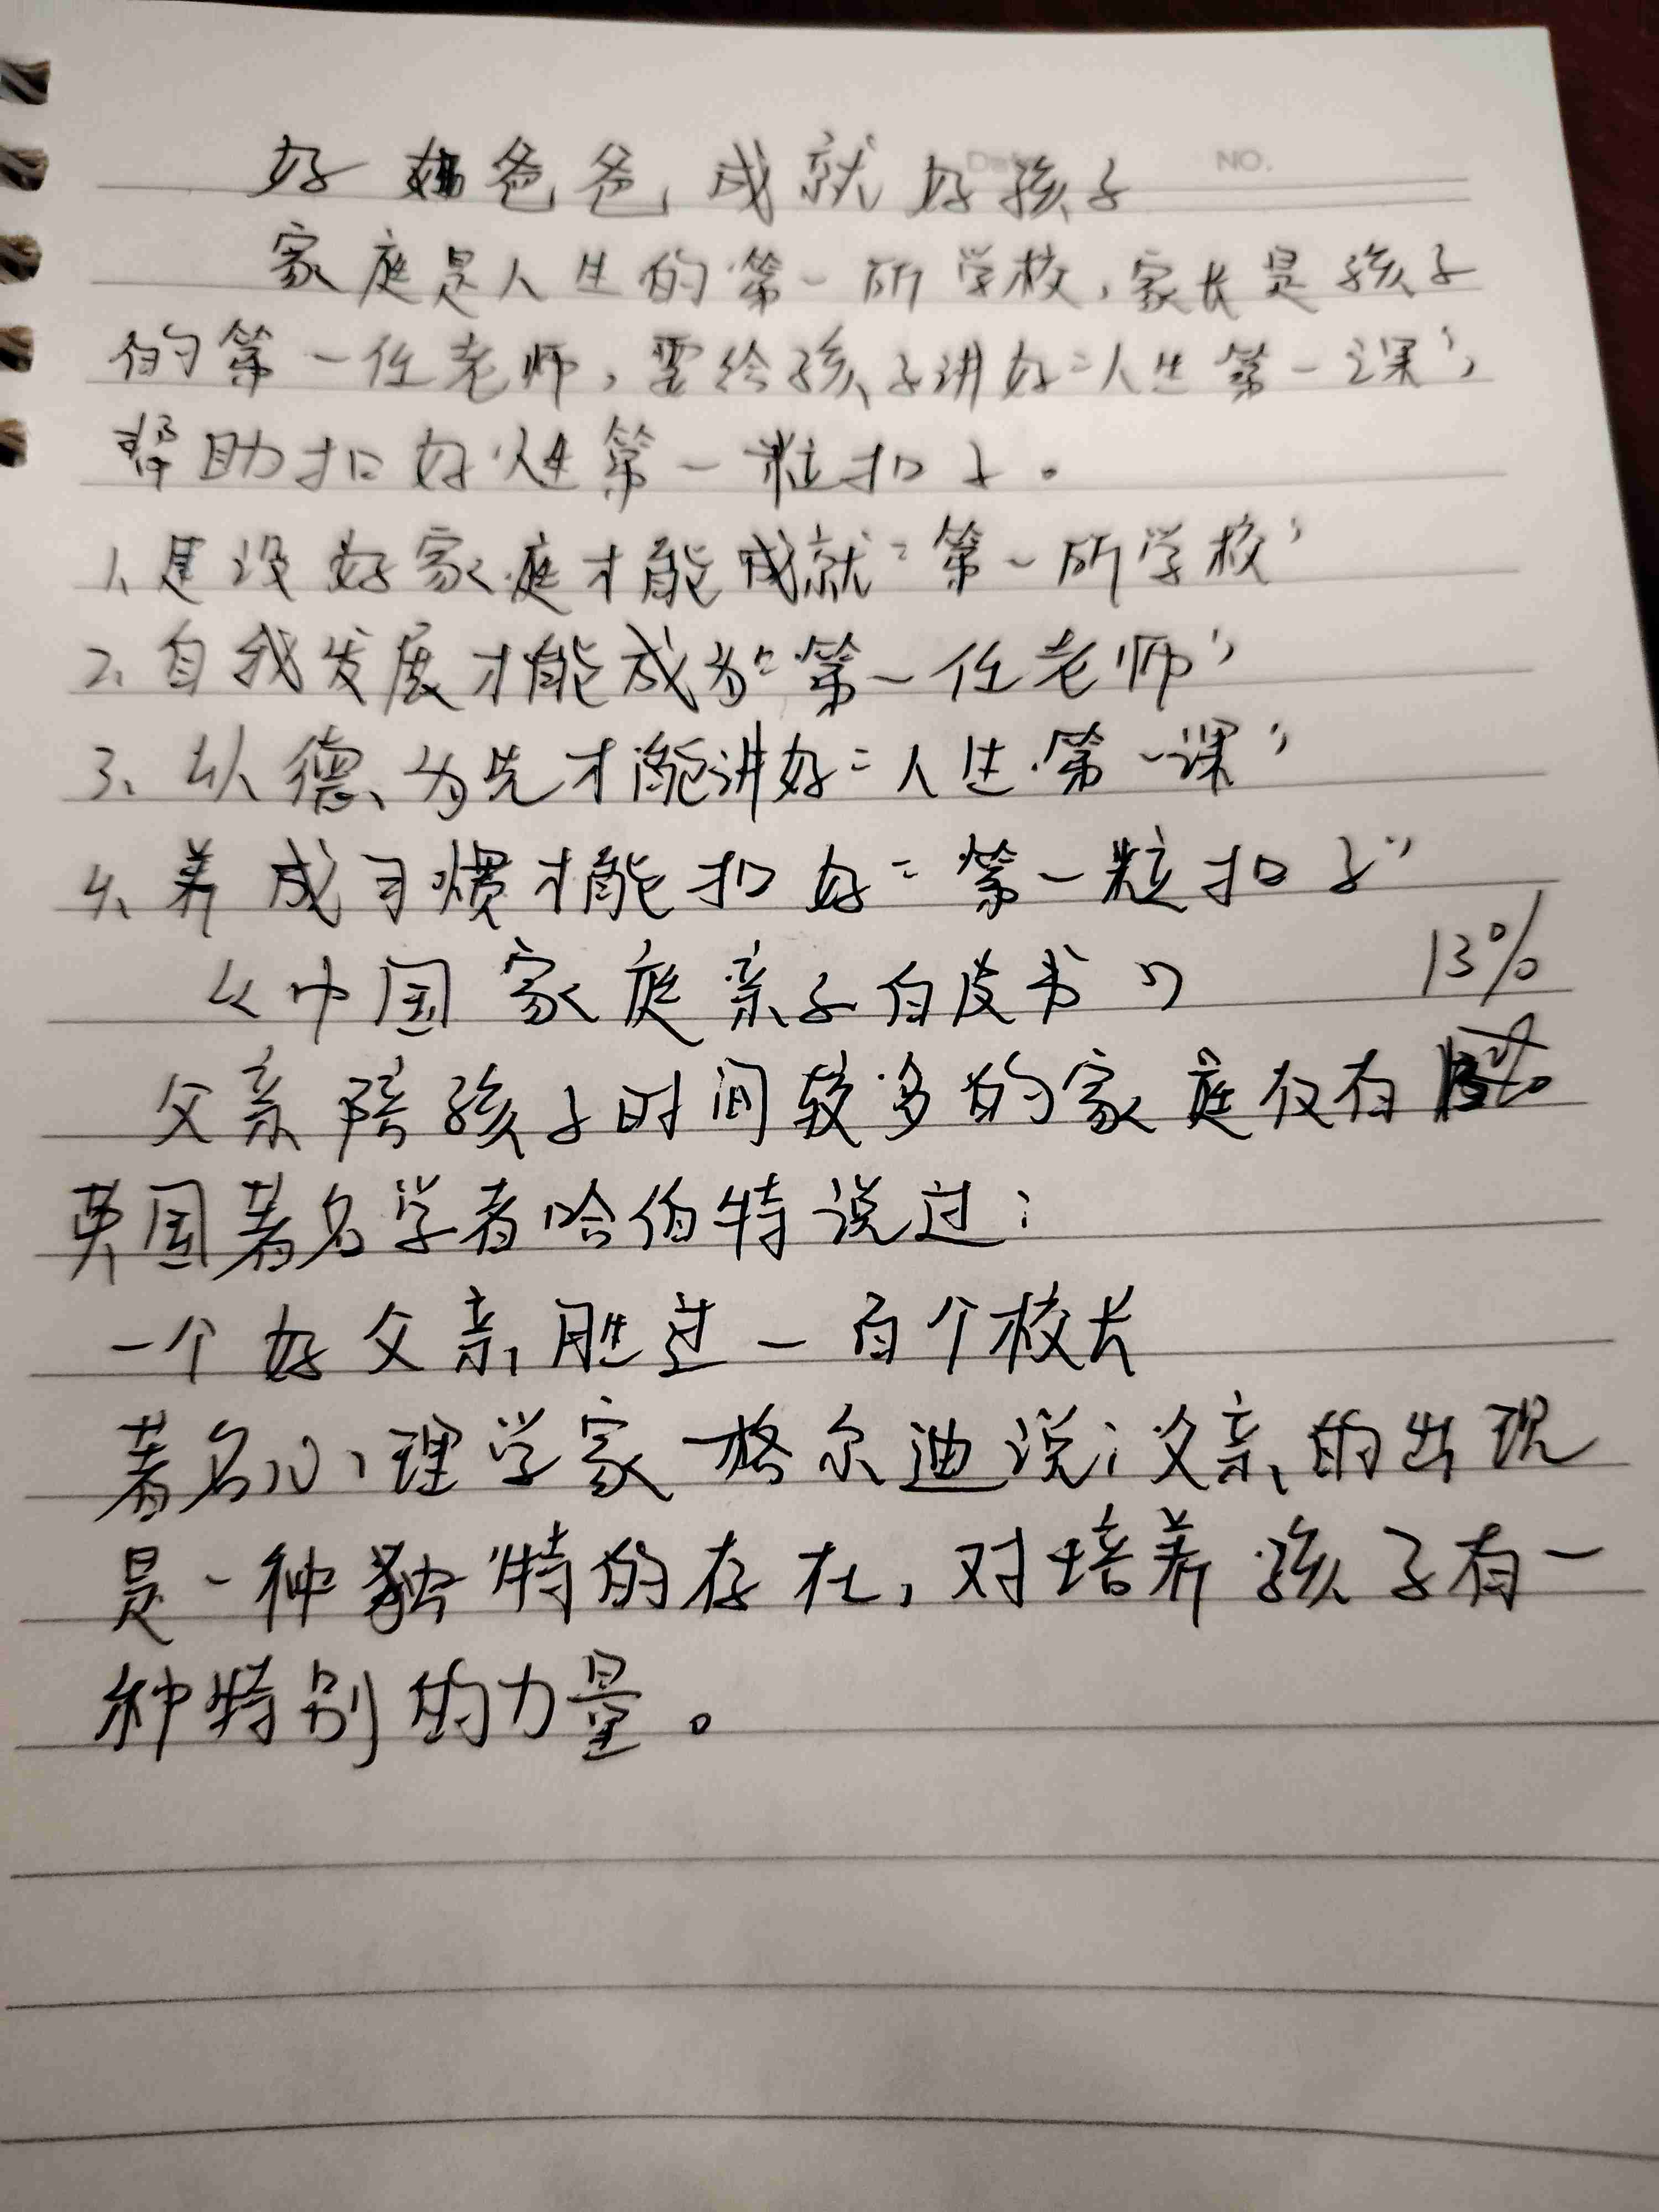 好爸爸成就好孩子
Date NO.
家庭是人生的第一所学校,家长是孩子
的第一任老师,要给孩子讲好“人生第一课”,
帮助扣好人生第一粒扣子。
1、建设好家庭才能成就“第一所学校”
2、自我发展才能成为“第一任老师”
3、以德为先才能讲好“人生第一课”
4、养成习惯才能扣好“第一粒扣子”
《中国家庭亲子白皮书》 13%
父亲陪孩子时间较多的家庭仅有
英国著名学者哈伯特说过:
一个好父亲胜过一百个校长
著名心理学家格尔迪说:父亲的出现
是一种独特的存在,对培养孩子有一
种特别的力量。